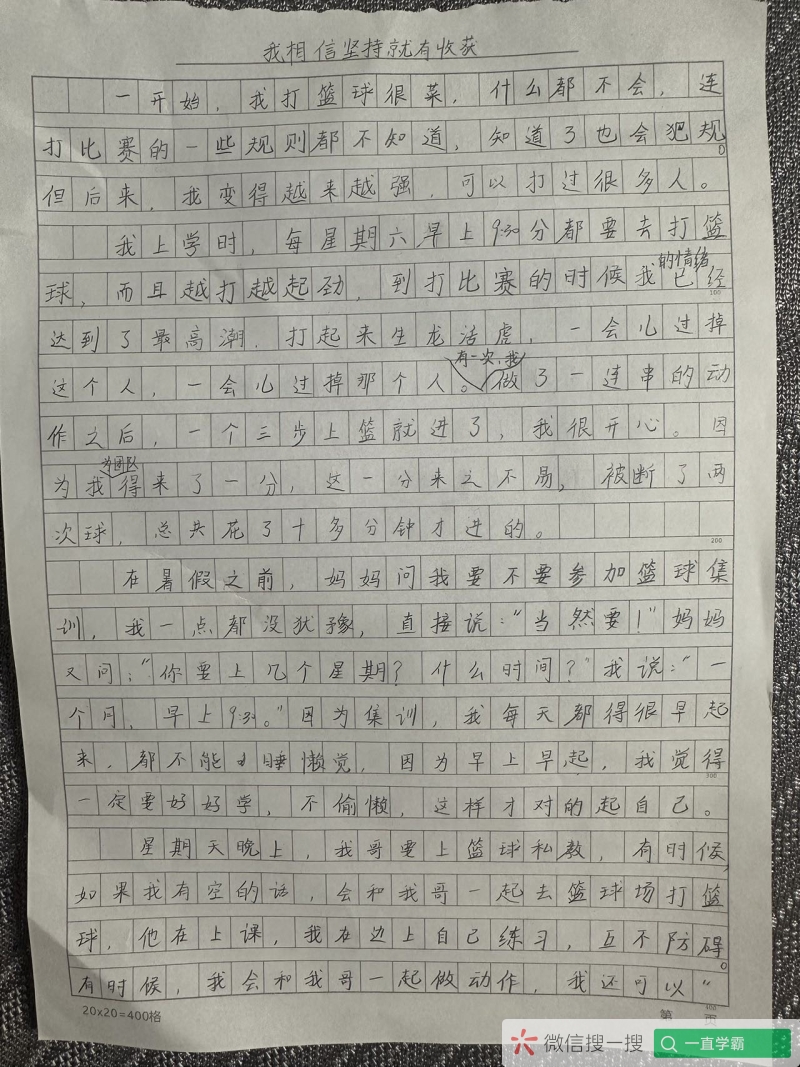 我相信坚持就有收获
一开始，我打篮球很菜，什么都不会，连
打比赛的一些规则都不知道，知道了也会犯规。
但后来，我变得越来越强，可以打过很多人。
我上学时，每星期六早上9:30分都要去打篮
球，而且越打越起劲，到打比赛的时候我的情绪已经
达到了最高潮，打起来生龙活虎，一会儿过掉
这个人，一会儿过掉那个人。有一次，我做了一连串的动
作之后，一个三步上篮就进了，我很开心。因
为我为团队得来了一分，这一分来之不易，被断了两
次球，总共花了十多分钟才进的。
200
在暑假之前，妈妈问我要不要参加篮球集
训，我一点都没犹豫，直接说："当然要！"妈妈
又问："你要上几个星期？什么时间？"我说："一
个月，早上9:30。"因为集训，我每天都得很早起
来，都不能睡懒觉，因为早上早起，我觉得
一定要好好学，不偷懒，这样才对的起自己。
星期天晚上，我哥要上篮球私教，有时候，
如果我有空的话，会和我哥一起去篮球场打篮
球，他在上课，我在边上自己练习，互不防碍。
有时候，我会和我哥一起做动作，我还可以"
20×20=400格
第 页
微信搜一搜
一直学霸